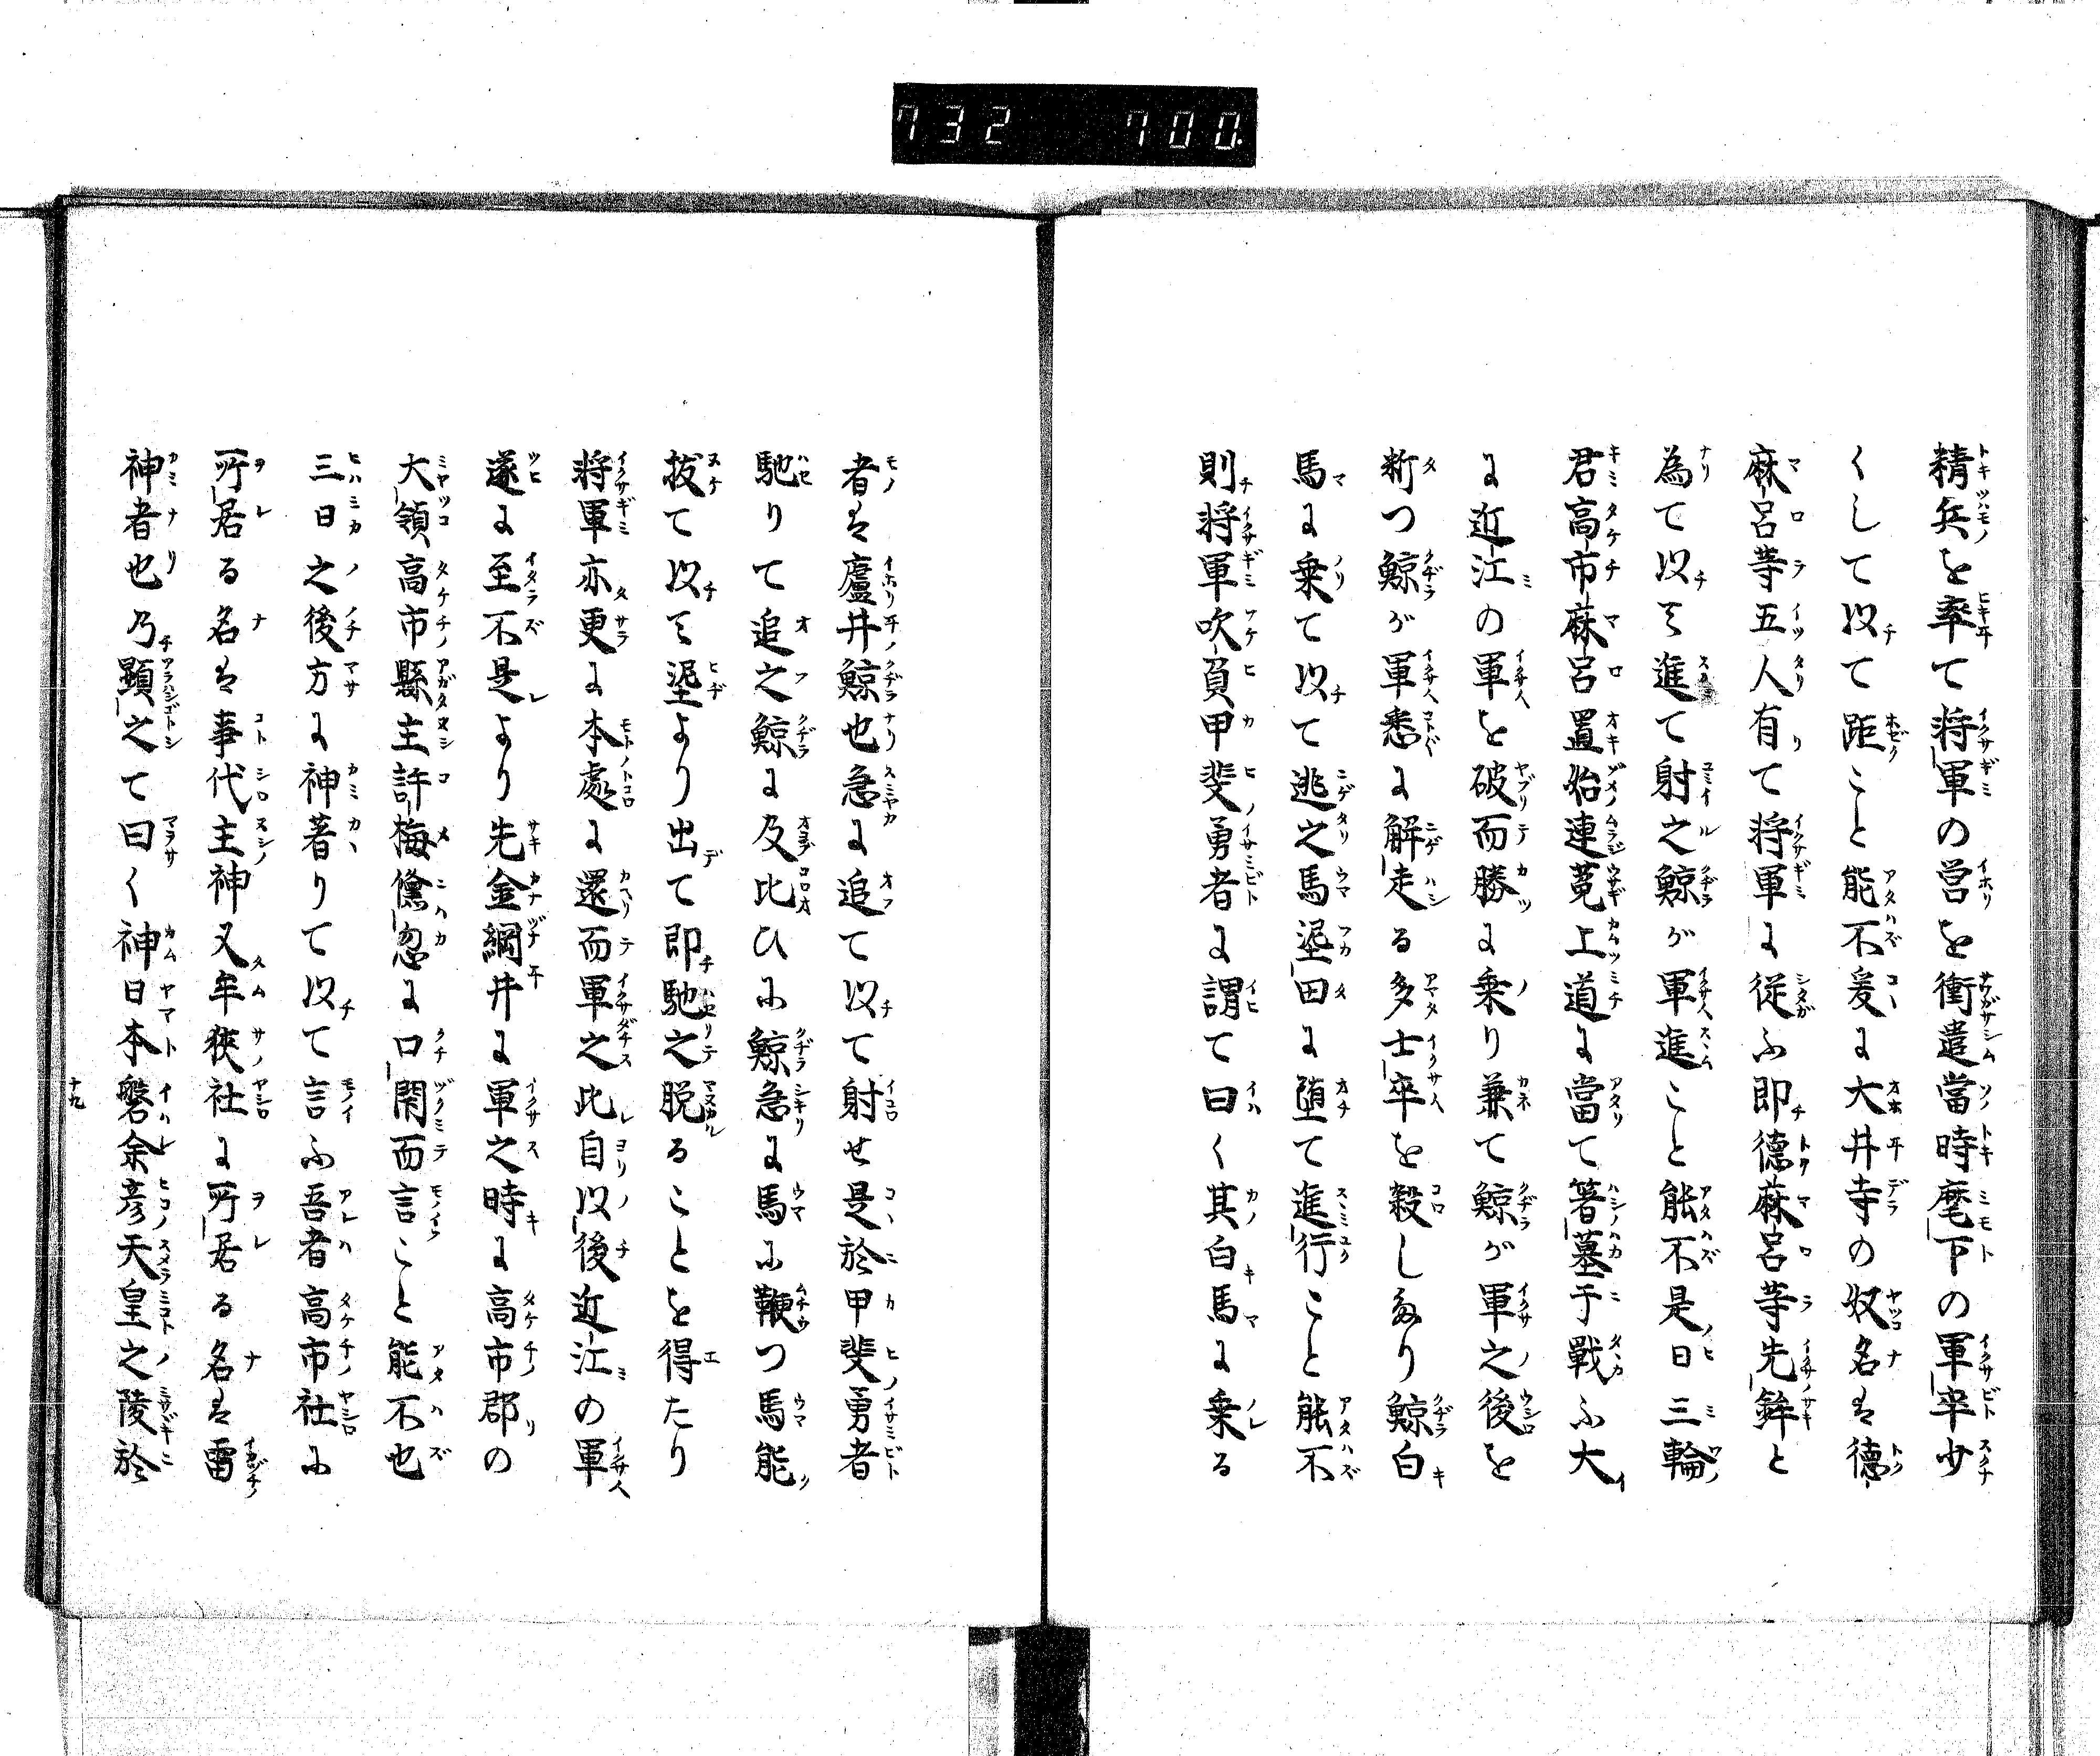 732 700.
精兵を率て将軍の営を衝遣當時麾下の軍卒少
くして以て距こと能不爰に大井寺の奴名は德
麻呂等五人有て将軍に從ふ即德麻呂等先鉾と
為て以て進て射之鯨が軍進こと能不是日三輪
君高市麻呂置始連菟上道に當て箸墓于戰ふ大
に近江の軍を破而勝に乗り兼て鯨が軍之後を
斬つ鯨が軍悉に解走る多士卒を殺しぬり鯨白
馬に乗て以て逃之馬埿田に堕て進行こと能不
則将軍吹負甲斐勇者に謂て曰く其白馬に乗る
者は廬井鯨也急に追て以て射せ是於甲斐勇者
馳りて追之鯨に及比ひに鯨急に馬に鞭つ馬能
拔て以て埿より出て即馳之脱ることを得たり
将軍亦更に本處に還而軍之此自以後近江の軍
遂に至不是より先金綱井に軍之時に高市郡の
大領高市縣主許梅儵忽に口閇而言こと能不也
三日之後方に神著りて以て言ふ吾者高市社に
所居る名は事代主神又牟狹社に所居る名は雷
神者也乃顯之て曰く神日本磐余彦天皇之陵於
十九